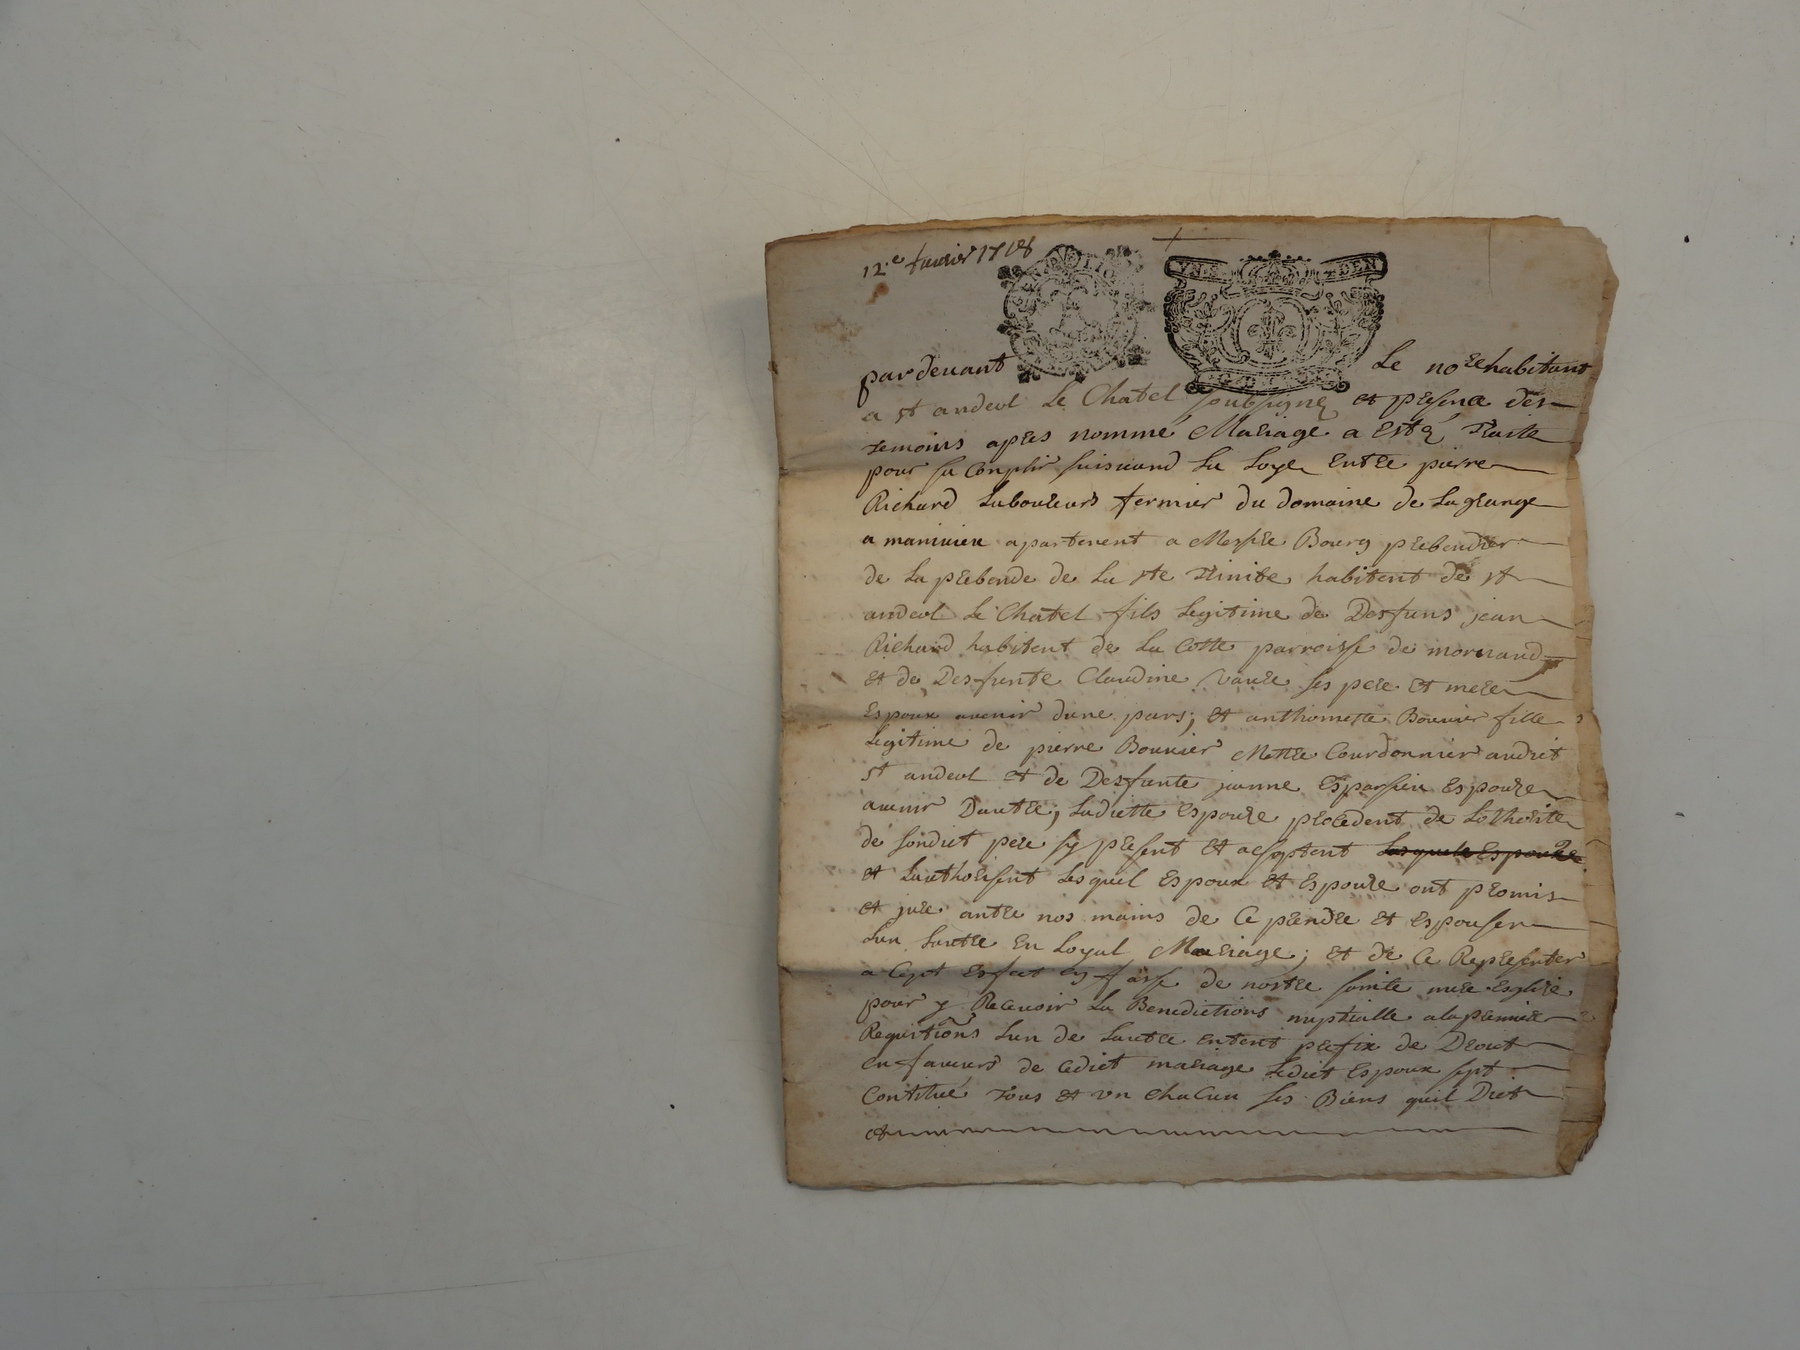 12.e fevrier 1718
VN S TDEN
pardevant Le no.re habitant
a st andeol Le Chatel soubsigne et presence des
temoins apres nommé Mariage a esté traitte
pour sa Conplir suisvand La Loye entre pierre
Richard Laboureurs fermier du domaine de Lagrange
a manivieu apartenent a Messire Bourg prebendier
de La prebende de La ste trinite habitent de st
andeol Le Chatel fils Legitime de Desfuns jean
Richard habitent de La Cotte parroisse de mornand
et de Desfunte Claudine Vaure ses pere et mere
Espoux avenir dune pars; et anthomette Bouvier fille
Legitime de pierre Bouvier Mettre Courdonnier audict
st andeol et de Desfunte jeanne Esparsieu Espouze
avenir Dautre; Ladictte Espouze precedent de Lothorite
de sondict pere sy present et aceptent Lesquels Espouze
et Lauthorisent Lesquel Espoux et Espouze ont promis
et jure antre nos mains de Ce prendre et espouser
Lun Lautre En Loyal Mariage; et de Ce Representer
a Cest Esfect en fasse de nostre sainte mere Esglize
pour y Recevoir La Benedictions nuptialle a la premiere
Requisitions Lun de Lautre entent prefix de Drout
en faveurs de Cedict mariage Ledict Espoux sest
Contitué tous et un chaCun ses Biens quil Dict
et